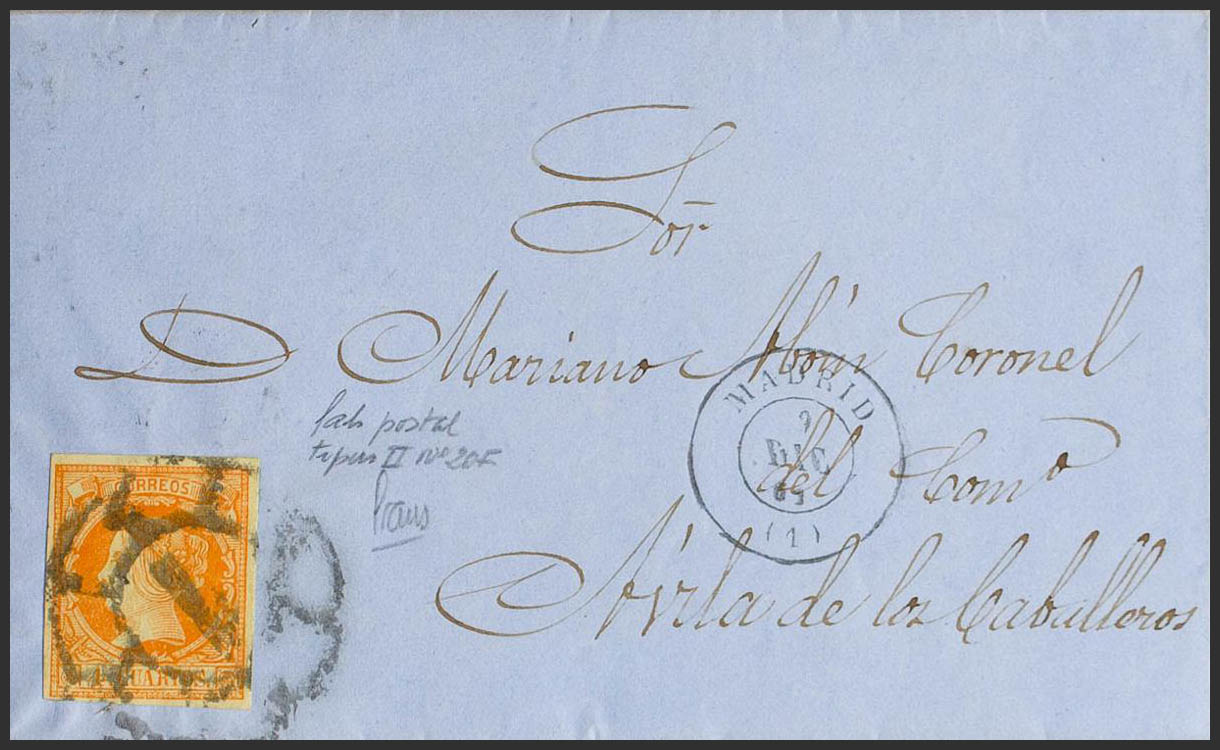 Sor
D Mariano Aboin Coronel
del Comº
Avila de los Caballeros
MADRID
2
DIC
(1)
fals postal
tipus II Nº 20F
CORREOS
4 CUARTOS